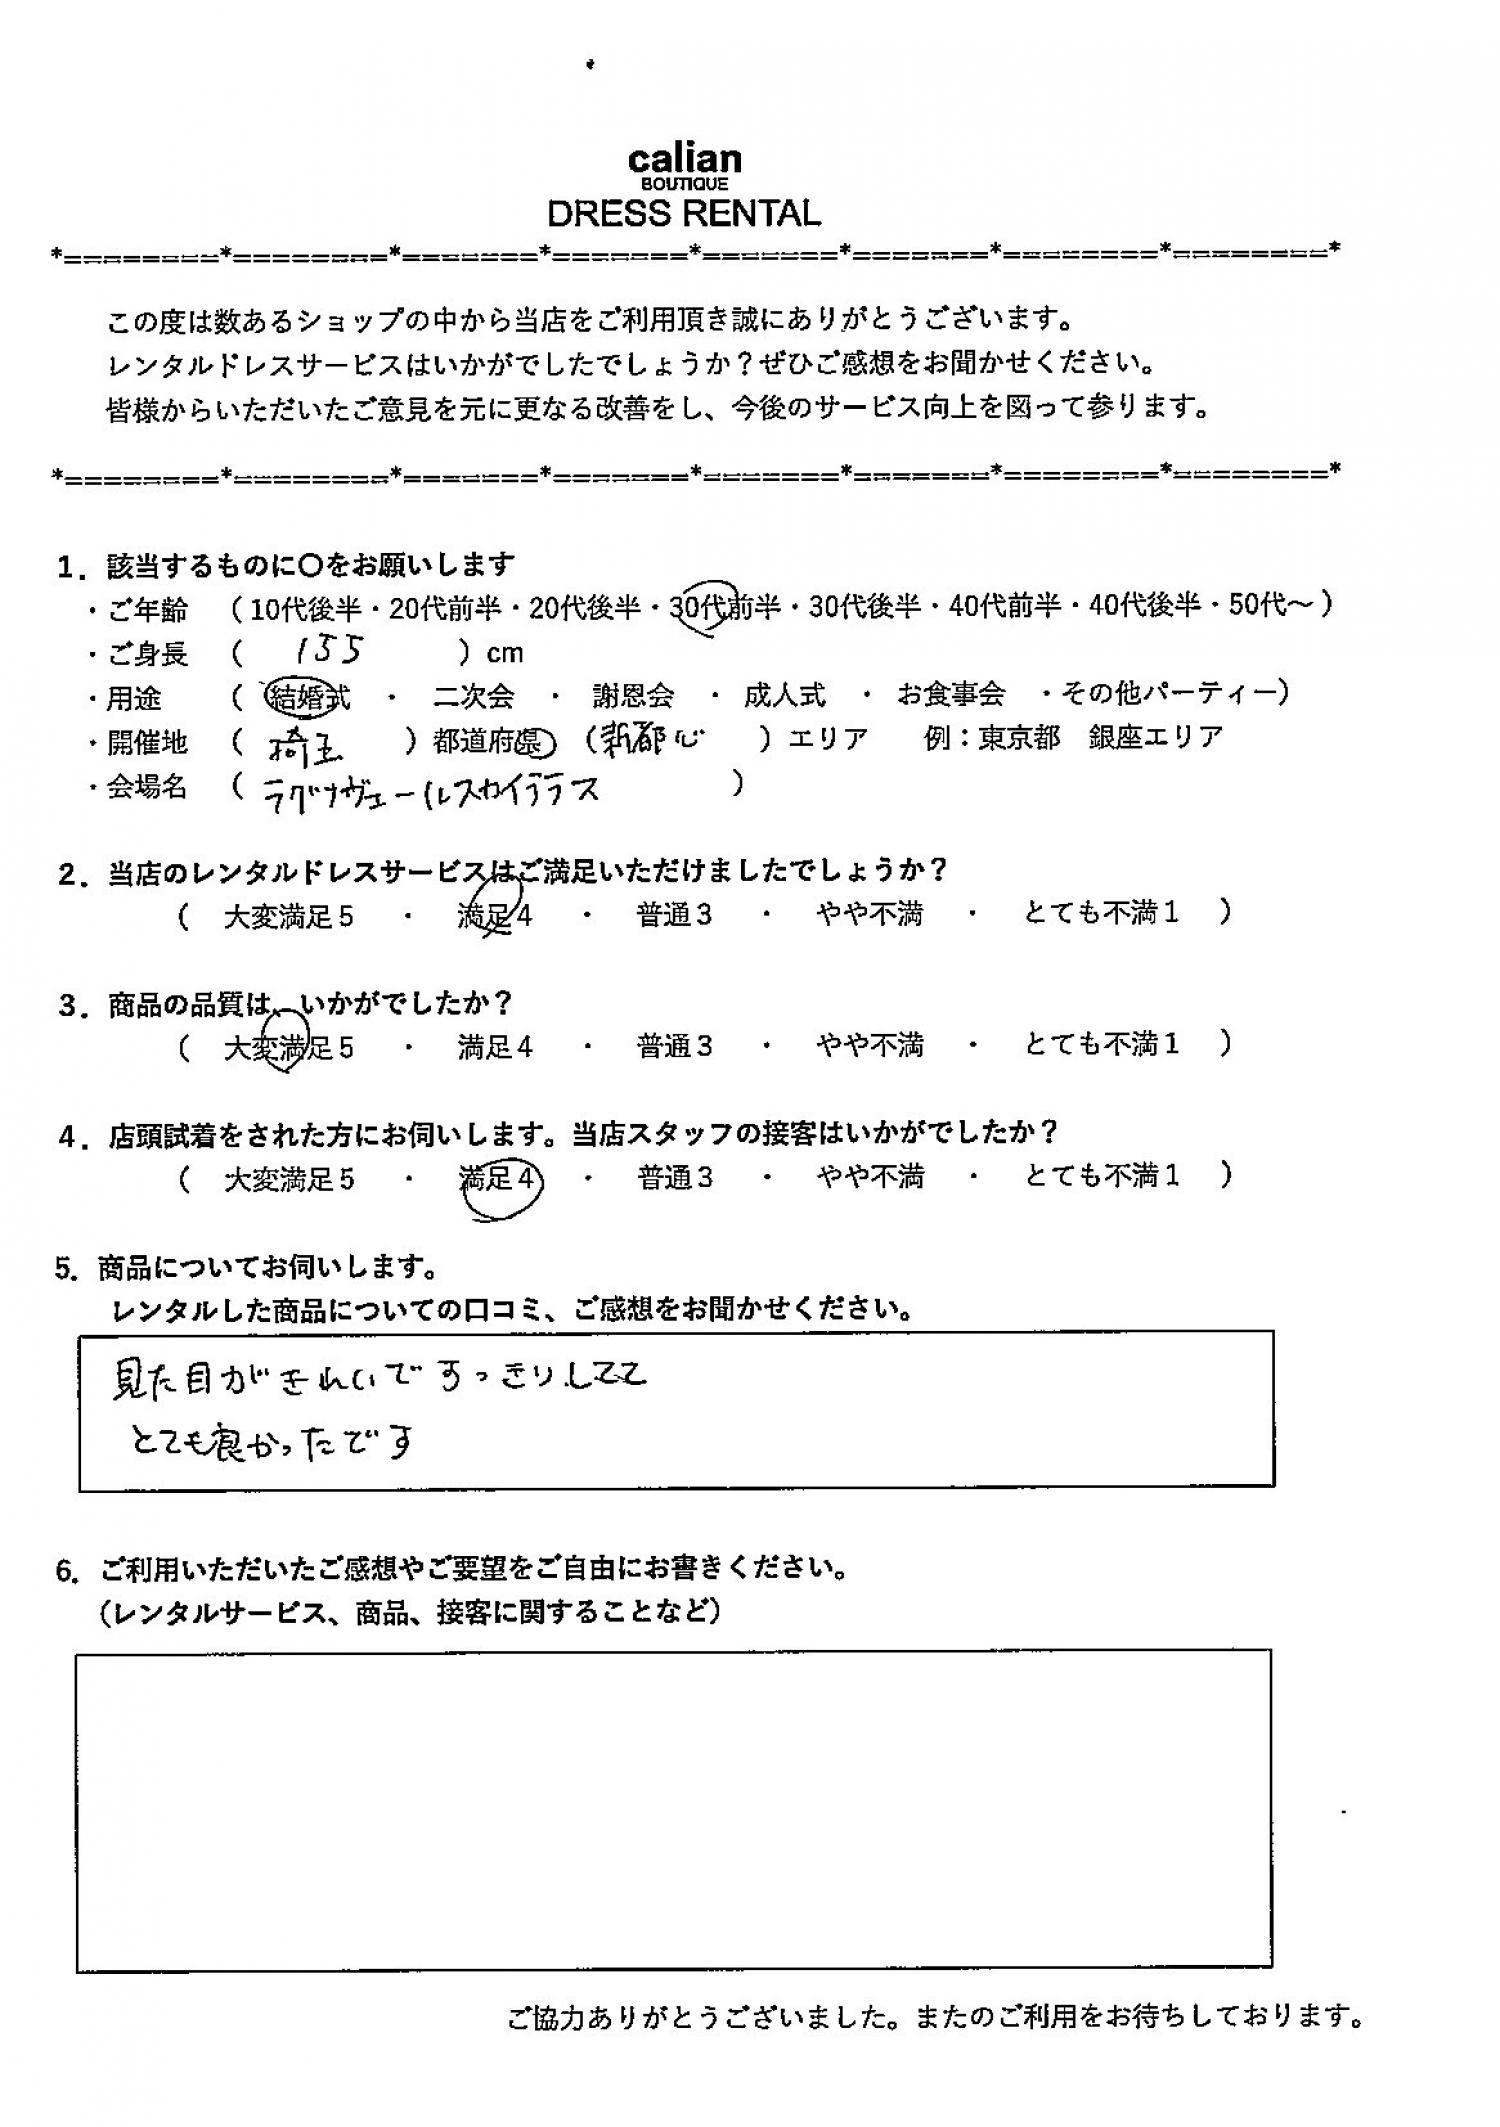 calian
BOUTIQUE
DRESS RENTAL
*========*========*=======*=======*=======*=======*========*========*
この度は数あるショップの中から当店をご利用頂き誠にありがとうございます。
レンタルドレスサービスはいかがでしたでしょうか？ぜひご感想をお聞かせください。
皆様からいただいたご意見を元に更なる改善をし、今後のサービス向上を図って参ります。
*========*========*=======*=======*=======*=======*========*========*
1．該当するものに〇をお願いします
・ご年齢 （10代後半・20代前半・20代後半・30代前半・30代後半・40代前半・40代後半・50代～）
・ご身長 （ 155 ）cm
・用途 （ 結婚式 ・ 二次会 ・ 謝恩会 ・ 成人式 ・ お食事会 ・その他パーティー）
・開催地 （ 埼玉 ）都道府県 （新都心 ）エリア 例：東京都 銀座エリア
・会場名 （ ラグナヴェールスカイテラス ）
2．当店のレンタルドレスサービスはご満足いただけましたでしょうか？
（ 大変満足５ ・ 満足４ ・ 普通３ ・ やや不満 ・ とても不満１ ）
3．商品の品質は、いかがでしたか？
（ 大変満足５ ・ 満足４ ・ 普通３ ・ やや不満 ・ とても不満１ ）
4．店頭試着をされた方にお伺いします。当店スタッフの接客はいかがでしたか？
（ 大変満足５ ・ 満足４ ・ 普通３ ・ やや不満 ・ とても不満１ ）
5．商品についてお伺いします。
レンタルした商品についての口コミ、ご感想をお聞かせください。
見た目がきれいですっきりしてて
とても良かったです
6．ご利用いただいたご感想やご要望をご自由にお書きください。
（レンタルサービス、商品、接客に関することなど）
ご協力ありがとうございました。またのご利用をお待ちしております。